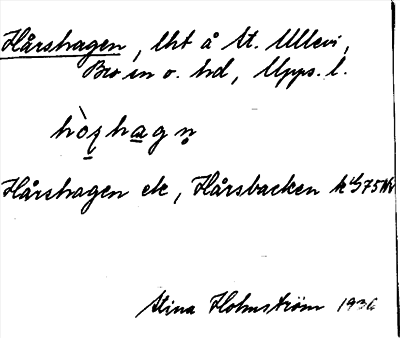 Hårshagen, lht å St. Ullevi,
Bro sn o. hd, Upps. l.
hò̱ʂha̱gṇ
Hårshagen ek, Hårsbacken
Stina Holmström 1936